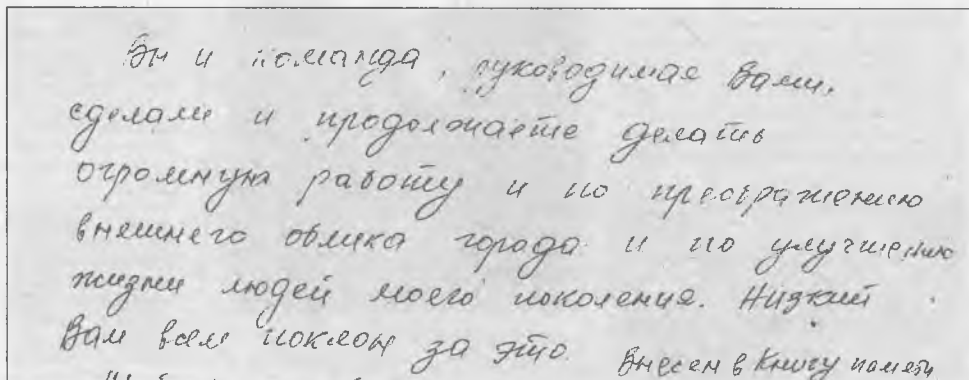 Вы и команда, руководимая Вами,
сделали и продолжаете делать
огромную работу и по преображению
внешнего облика города и по улучшению
жизни людей моего поколения. Низкий
Вам всем поклон за это. Внесем в Книгу памяти